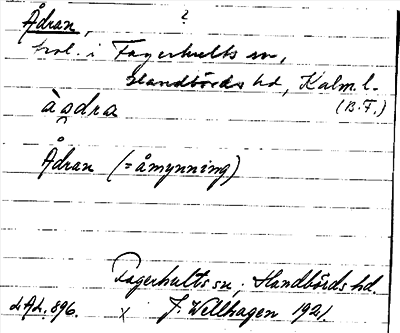 Ådran, ?
hel. i Fagerhults sn,
Handbörds hd, Kalm. l.
(B.F.)
àadra
Ådran (= åmynning)
Fagerhults sn, Handbörds hd.
d.Ad. 896. x J. Wellhagen 1921.